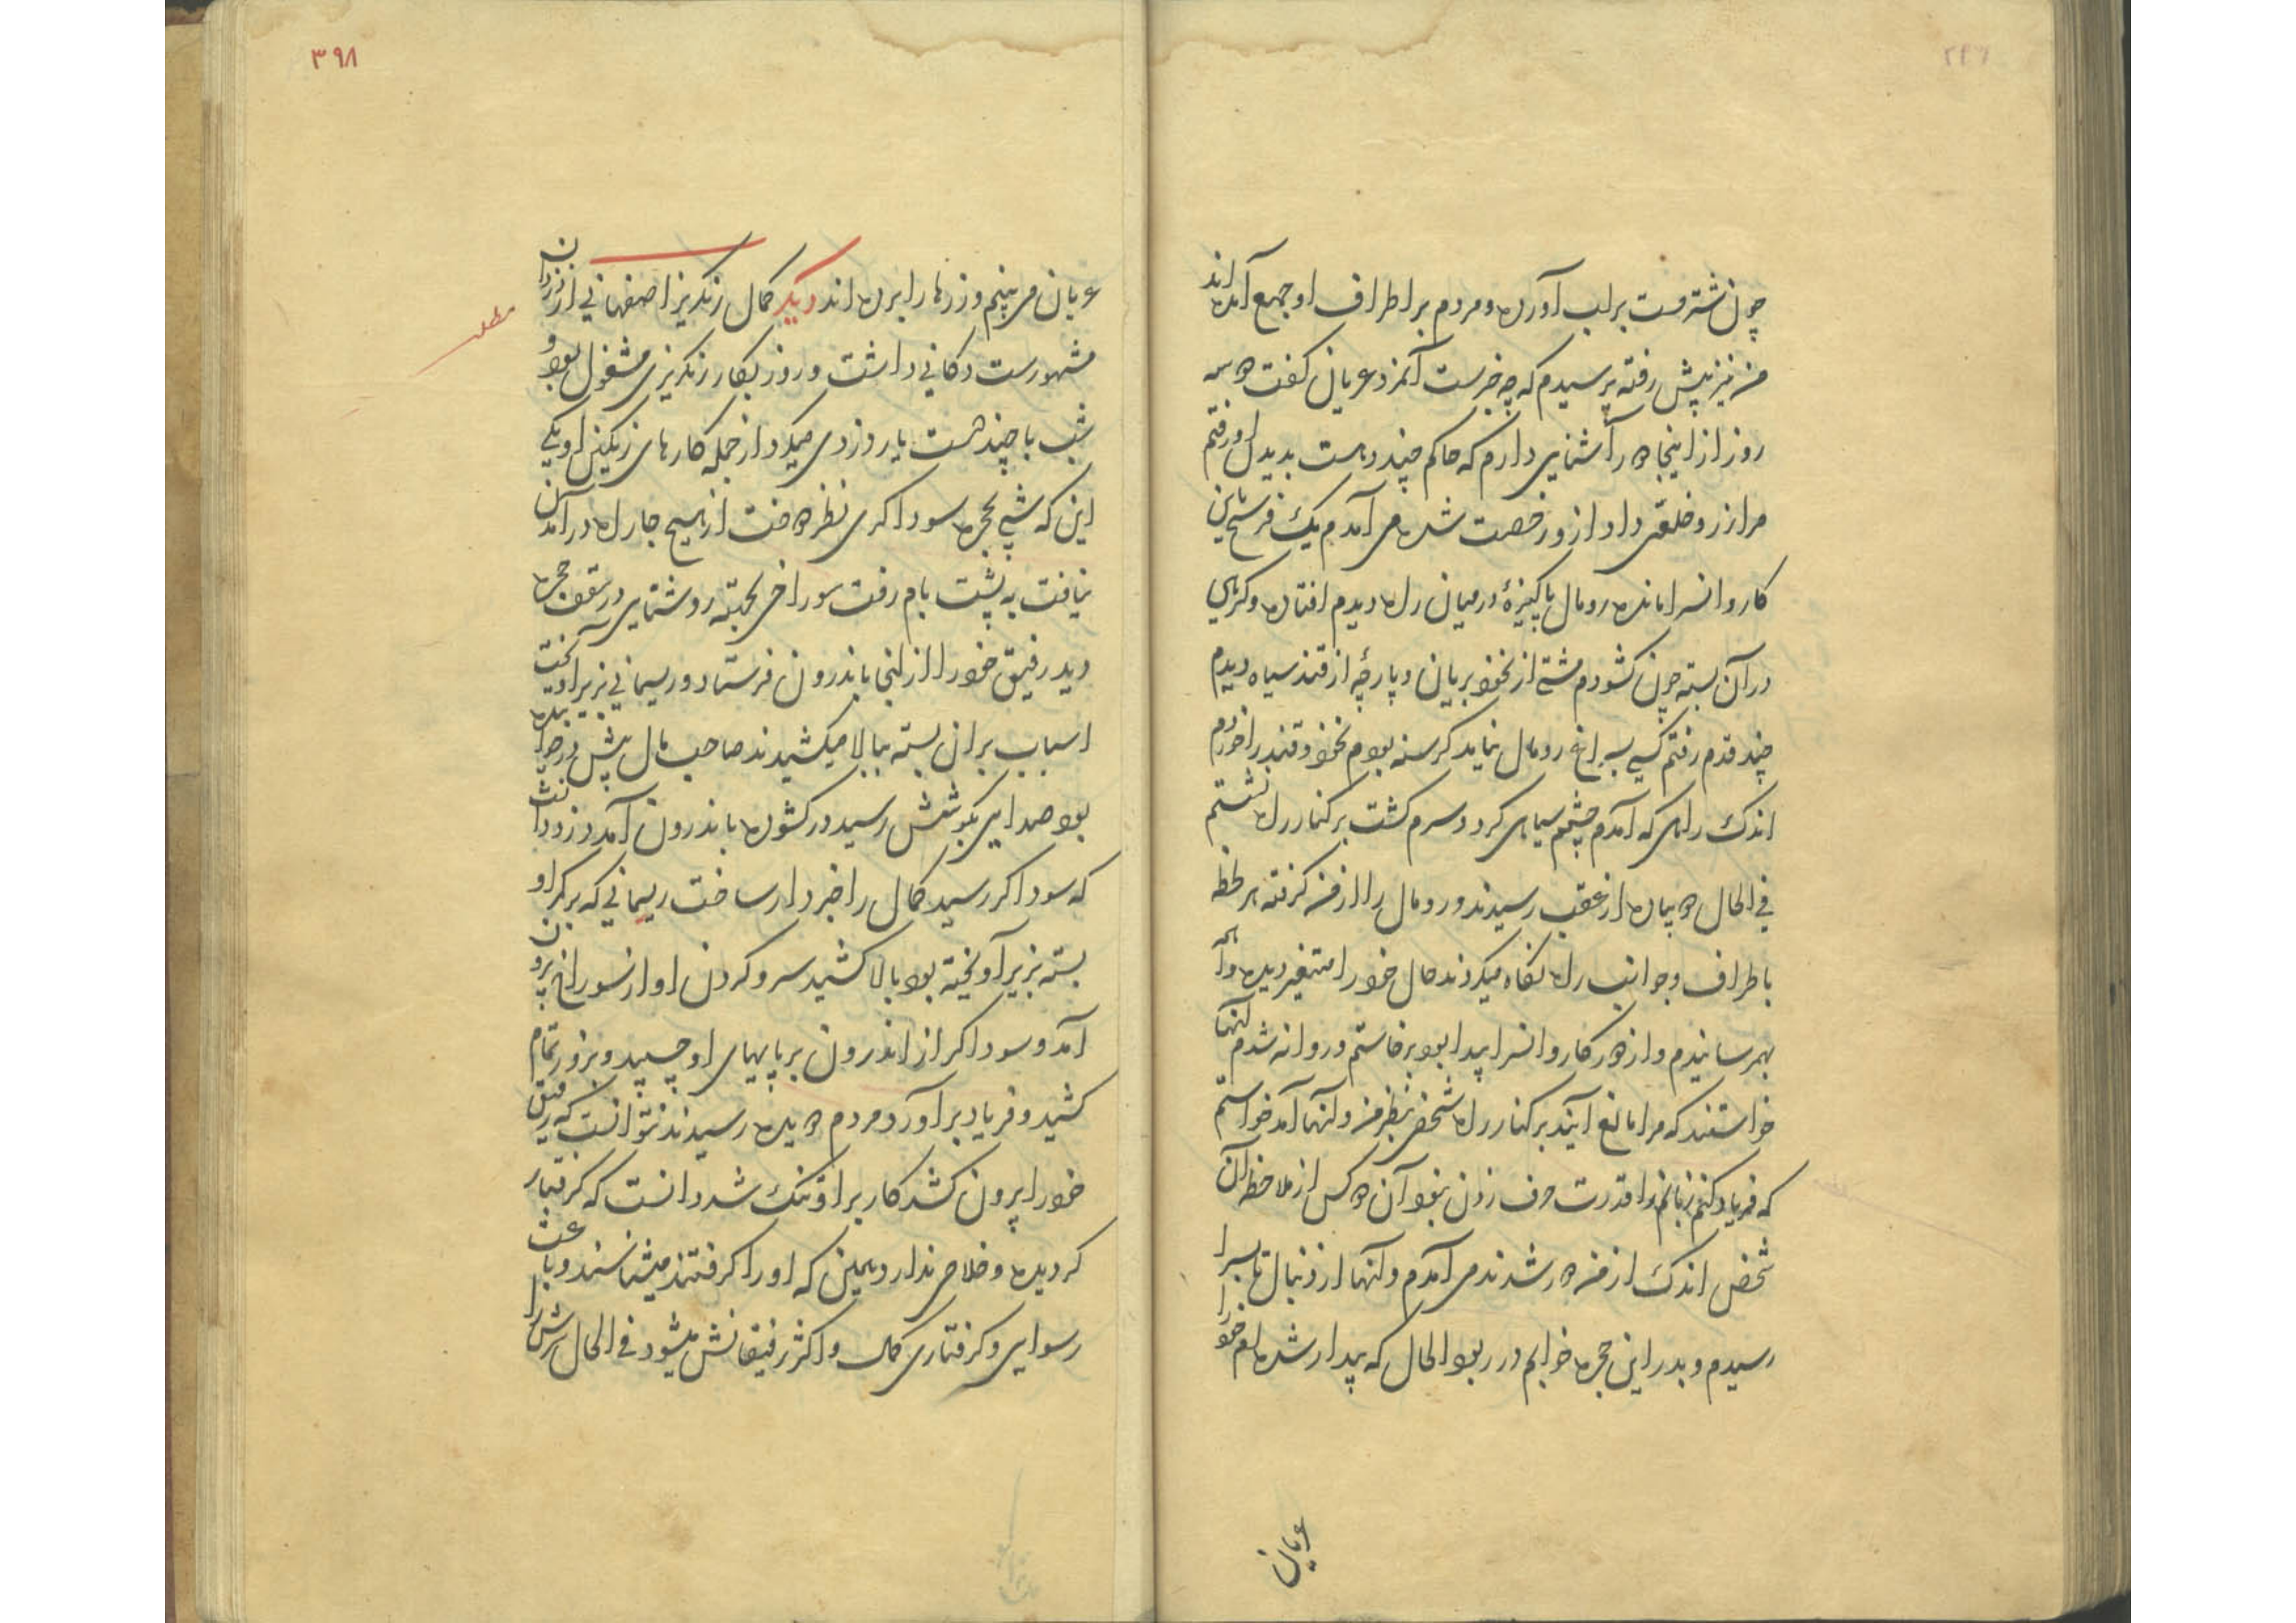 چون شتر مست بر لب آورده و مردم بر اطراف او جمع آمده‌اند
من نیز پیش رفته پرسیدم که چه خبرست آنمرد عریان گفت
روز از اینجا آشنایی دارم که حاکم چند دهست بدیدن او رفتم
مرا زر و خلعتی داد از او رخصت شده می آمدم یک فرسخی باین
کاروانسرا مانده رومال پاکیزهٔ در میان راه دیدم افتاده و گرهی
در آن بسته چون گشودم مشتی از نخود بریان و پارچهٔ از قند سیاه دیدم
چند قدم رفتم کسی بسراغ رومال نیامد گرسنه بودم نخود و قند را خوردم
اندک راهی که آمدم چشمم سیاهی کرد و سرم گشت بر کنار راه نشستم
فی الحال پیاده از عقب رسیدند و رومال را از من گرفته هر لحظه
باطراف و جوانب راه نگاه میکردند حال خود را متغیر دیده
بهم رسانیدم و از دور کاروانسرا پیدا بود برخاستم و روانه شدم آنها
خواستند که مرا مانع آیند بر کنار راه شخصی بنظر من و آنها آمد خواستم
که فریاد کنم زبانم را قدرت حرف زدن نبود آن دو کس از ملاحظه آن
شخص اندک از من دور شدند می آمدم و آنها از دنبال تا بسرا
رسیدم و بدر این حجره خوابم در ربود الحال که بیدار شده‌ام خود را
عریان
۳۹۸
عریان می بینم و زرها را برده اند دیگر کمال رنگریز اصفهانی از دزدان
مشهورست دکانی داشت و روز بکار رنگریزی مشغول بود و
شب با چند دست یار دزدی میکرد از جمله کارهای رنگین او یکی
این که شبی بحجره سوداگری نظر انداخت از هیچ جا راه در آمدن
نیافت به پشت بام رفت سوراخی بجهته روشنایی در سقف حجره
دید رفیق خود را از آنجا باندرون فرستاد و ریسمانی بزیر آویخت
اسباب بر آن بسته ببالا میکشیدند صاحب مال پیش در خوابیده
بود صدایی بگوشش رسید در گشوده باندرون آمد دزد دانست
که سوداگر رسید کمال را خبردار ساخت ریسمانی که بر کمر او
بسته بزیر آویخته بود بالا کشید سر و گردن او از سوراخ برون
آمد و سوداگر از اندرون بر پایهای او چسپید و بزور تمام
کشید و فریاد برآورد مردم رسیدند نتوانست که رفیق
خود را بیرون کشد کار بر او تنگ شد دانست که گرفتار
گردیده و خلاصی ندارد و همین که او را گرفتند میشناسند و باعث
رسوایی و گرفتاری کمال و اکثر رفیقانش میشود فی الحال سرش را
مطلب